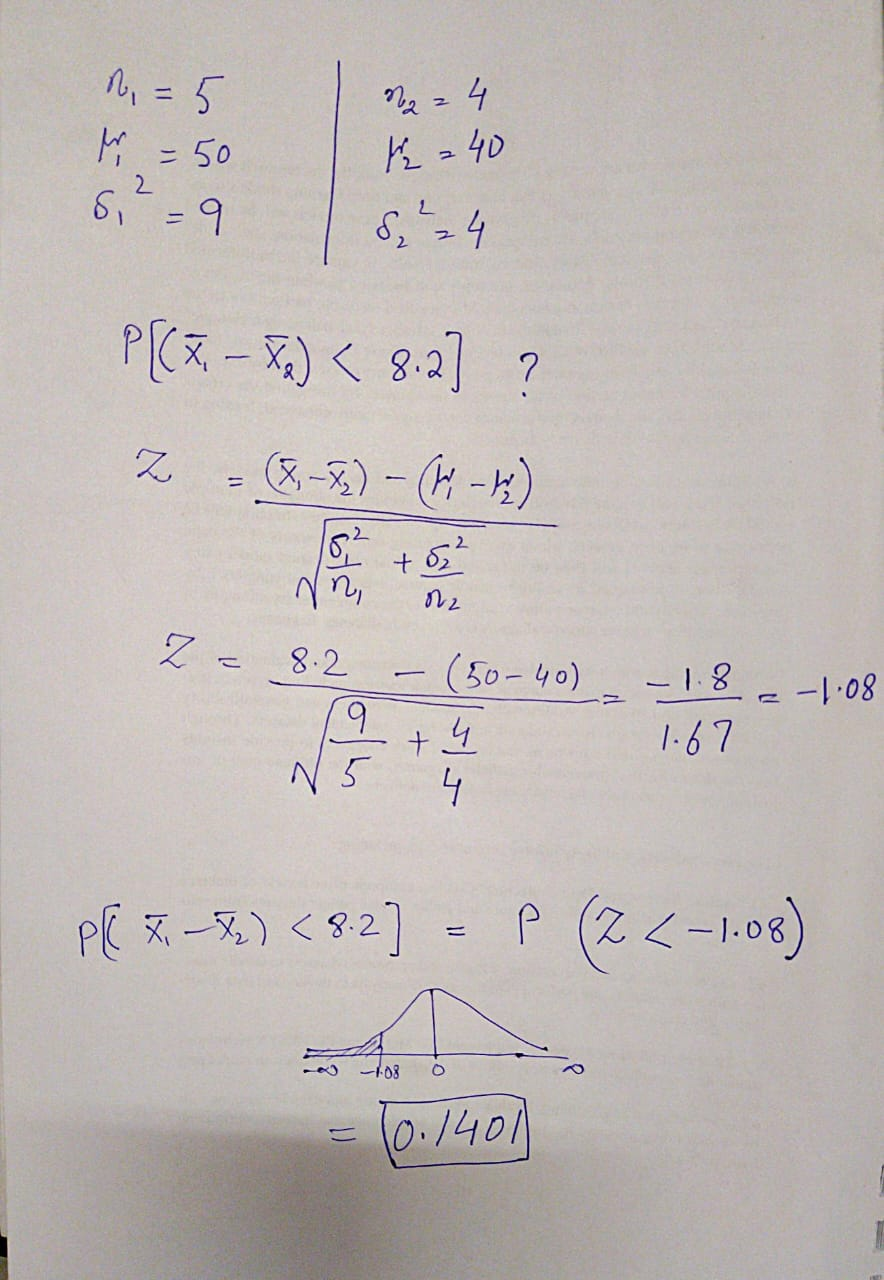 n₁ = 5
μ₁ = 50
σ₁² = 9
n₂ = 4
μ₂ = 40
σ₂² = 4
P[(x̄₁ − x̄₂) < 8.2] ?
Z = (x̄₁−x̄₂) − (μ₁ −μ₂) / √(σ₁²/n₁ + σ₂²/n₂)
Z = 8.2 − (50−40) / √(9/5 + 4/4) = −1.8 / 1.67 = −1.08
P[(x̄₁ −x̄₂) < 8.2] = P (Z < −1.08)
−∞ −1.08 0 ∞
= 0.1401